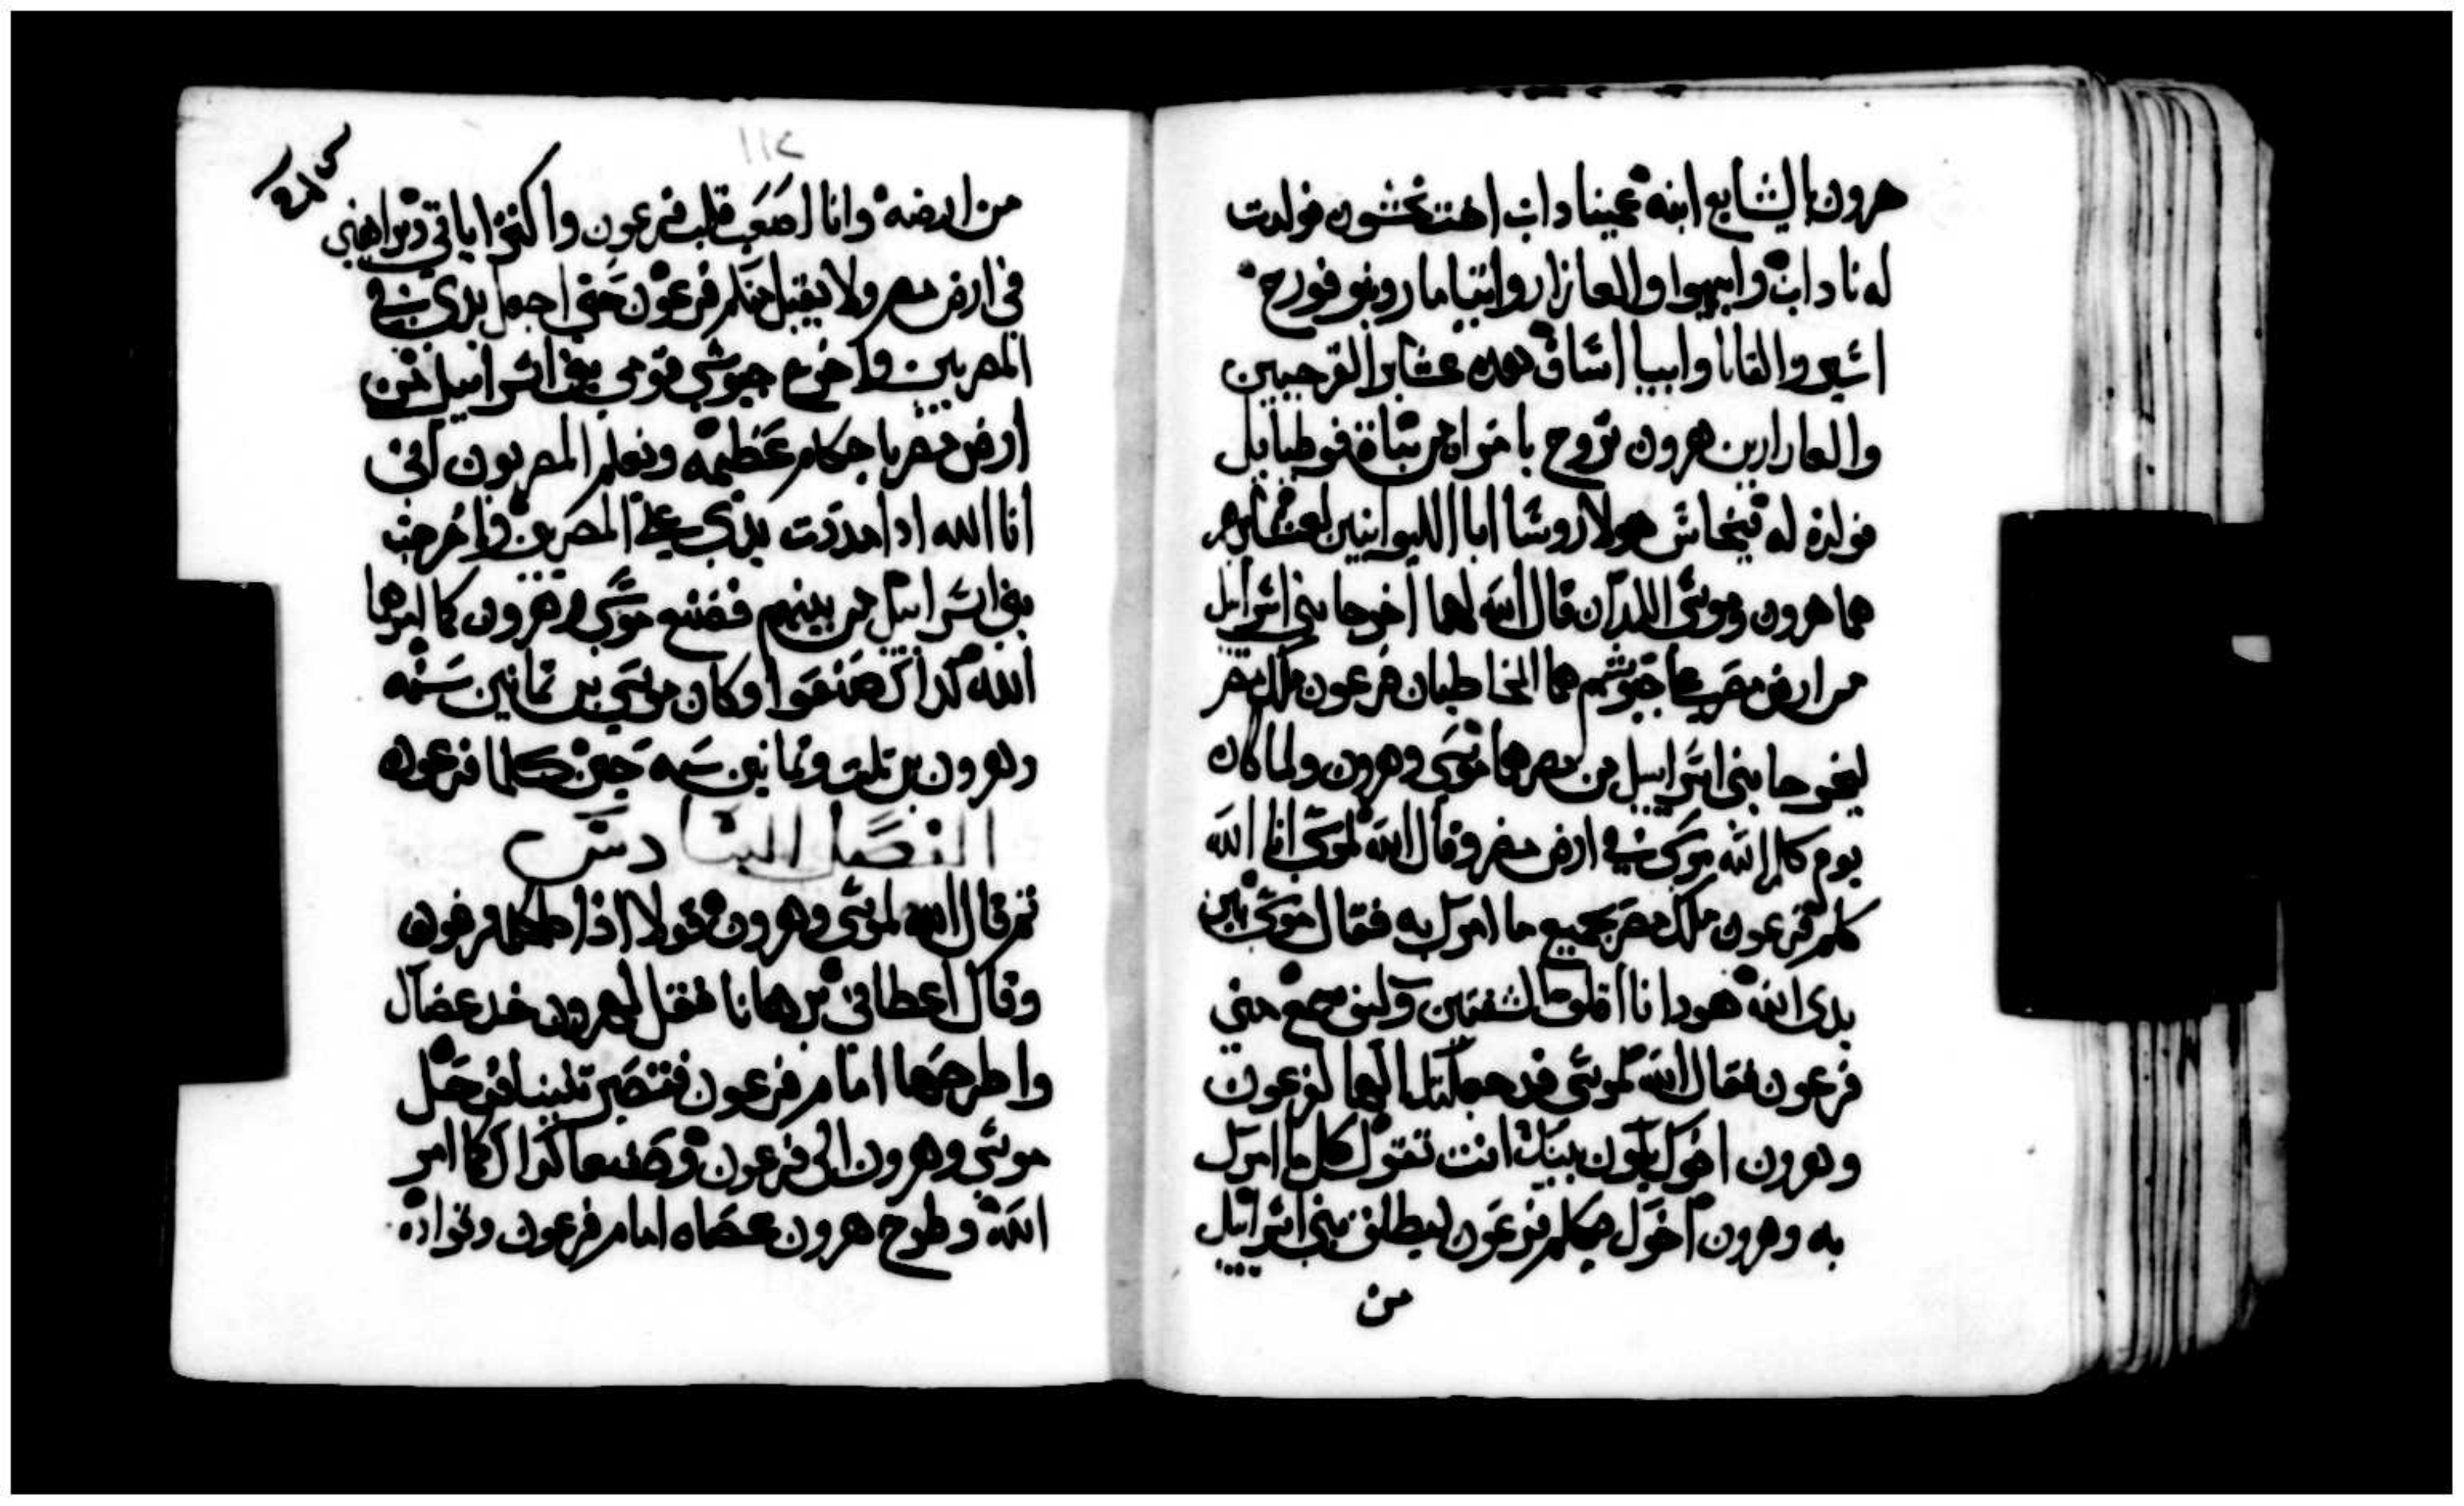 هرون باليشابع ابنة عميناداب اخت نحشون فولدت
له ناداب وابيهوا والعازار وايتامار وبنو قورح
اشير والقانا وابيا اساف هده عشاير القرحيين
والعازار بن هرون تزوج بامراه من بناة فوطيايل
فولدة له فينحاس هولا روسا ابا الليوانيين لعشايرهم
هما هرون وموسى اللدان قال الله لهما اخرجا بني اسراييل
من ارض مصر مع جيوشهم هما المخاطبان فرعون ملك مصر
ليخرجا بني اسراييل من مصر هما موسى وهرون ولما كان
يوم كلم الله موسى في ارض مصر وقال الله لموسى انا الله
كلم فرعون ملك مصر بجميع ما امرك به فقال موسى بين
يدى الله هودا انا اقلف الشفتين وكيف يسمع مني
فرعون فقال الله لموسى قد جعلتك الهما لفرعون
وهرون اخوك يكون نبيك انت تقول كل ما امرك
به وهرون اخوك يكلم فرعون ليطلق بني اسراييل
من
١١٢
من ارضه وانا اصعب قلب فرعون واكثر اياتي وبراهيني
في ارض مصر ولا يقبل منكم فرعون حتى اجعل يدي في
المصريين واخرج جيوشي قومي بني اسراييل من
ارض مصر باحكام عظيمه ويعلم المصريون انني
انا الله ادا مددت يدي على المصريين واخرجت
بني اسراييل من بينهم فصنع موسى وهرون كما امرهما
الله كداك صنعوا وكان موسى بن تمانين سنه
وهرون بن تلت وتمانين سنه حين كلما فرعون
الفصل السادس
تم قال الله لموسى وهرون قولا اذا كلمكما فرعون
وقال اعطاني برهانا فقل لهرون خد عصاك
واطرحها امام فرعون فتصير تنينا فدخل
موسى وهرون الى فرعون وصنعا كداك كما امر
الله وطرح هرون عصاه امام فرعون وقواده